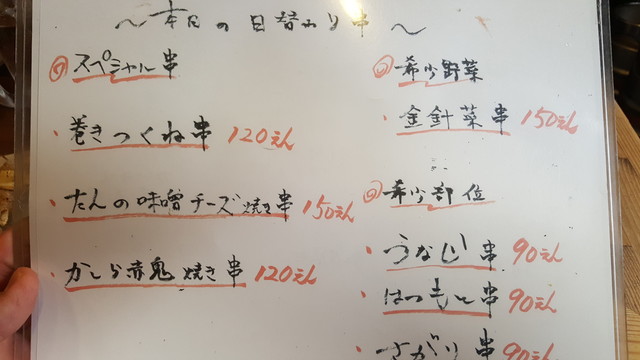 ～本日の日替わり串～
スペシャル串
・巻きつくね串 120えん
・たんの味噌チーズ焼き串 150えん
・かしら赤鬼焼き串 120えん
希少野菜
・金針菜串 150えん
希少部位
・うなじ串 90えん
・はつもと串 90えん
・さがり串 90えん